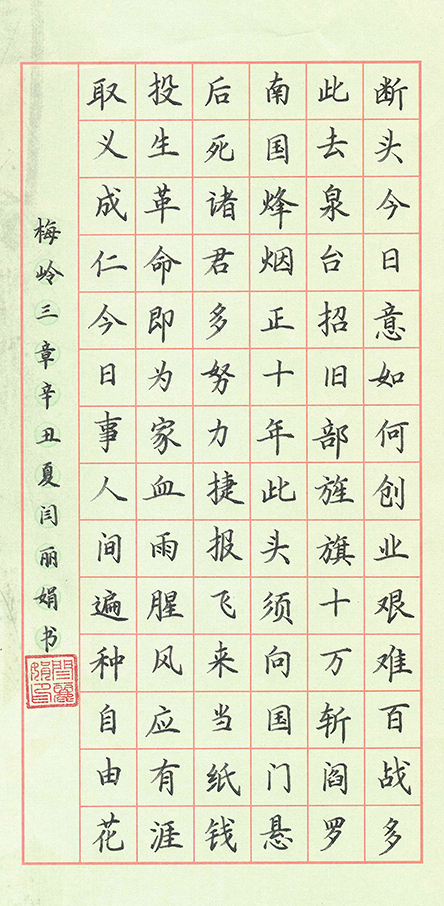 断头今日意如何创业艰难百战多
此去泉台招旧部旌旗十万斩阎罗
南国烽烟正十年此头须向国门悬
后死诸君多努力捷报飞来当纸钱
投生革命即为家血雨腥风应有涯
取义成仁今日事人间遍种自由花
梅岭三章辛丑夏闫丽娟书